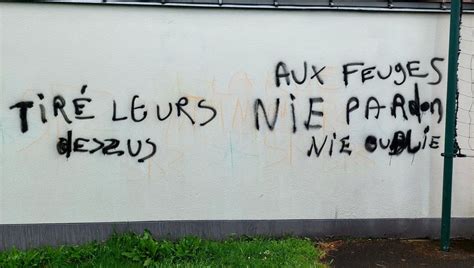 TIRÉ LEURS
DESZUS
AUX FEUGES
NIE PARdon
NIE OUBLIE